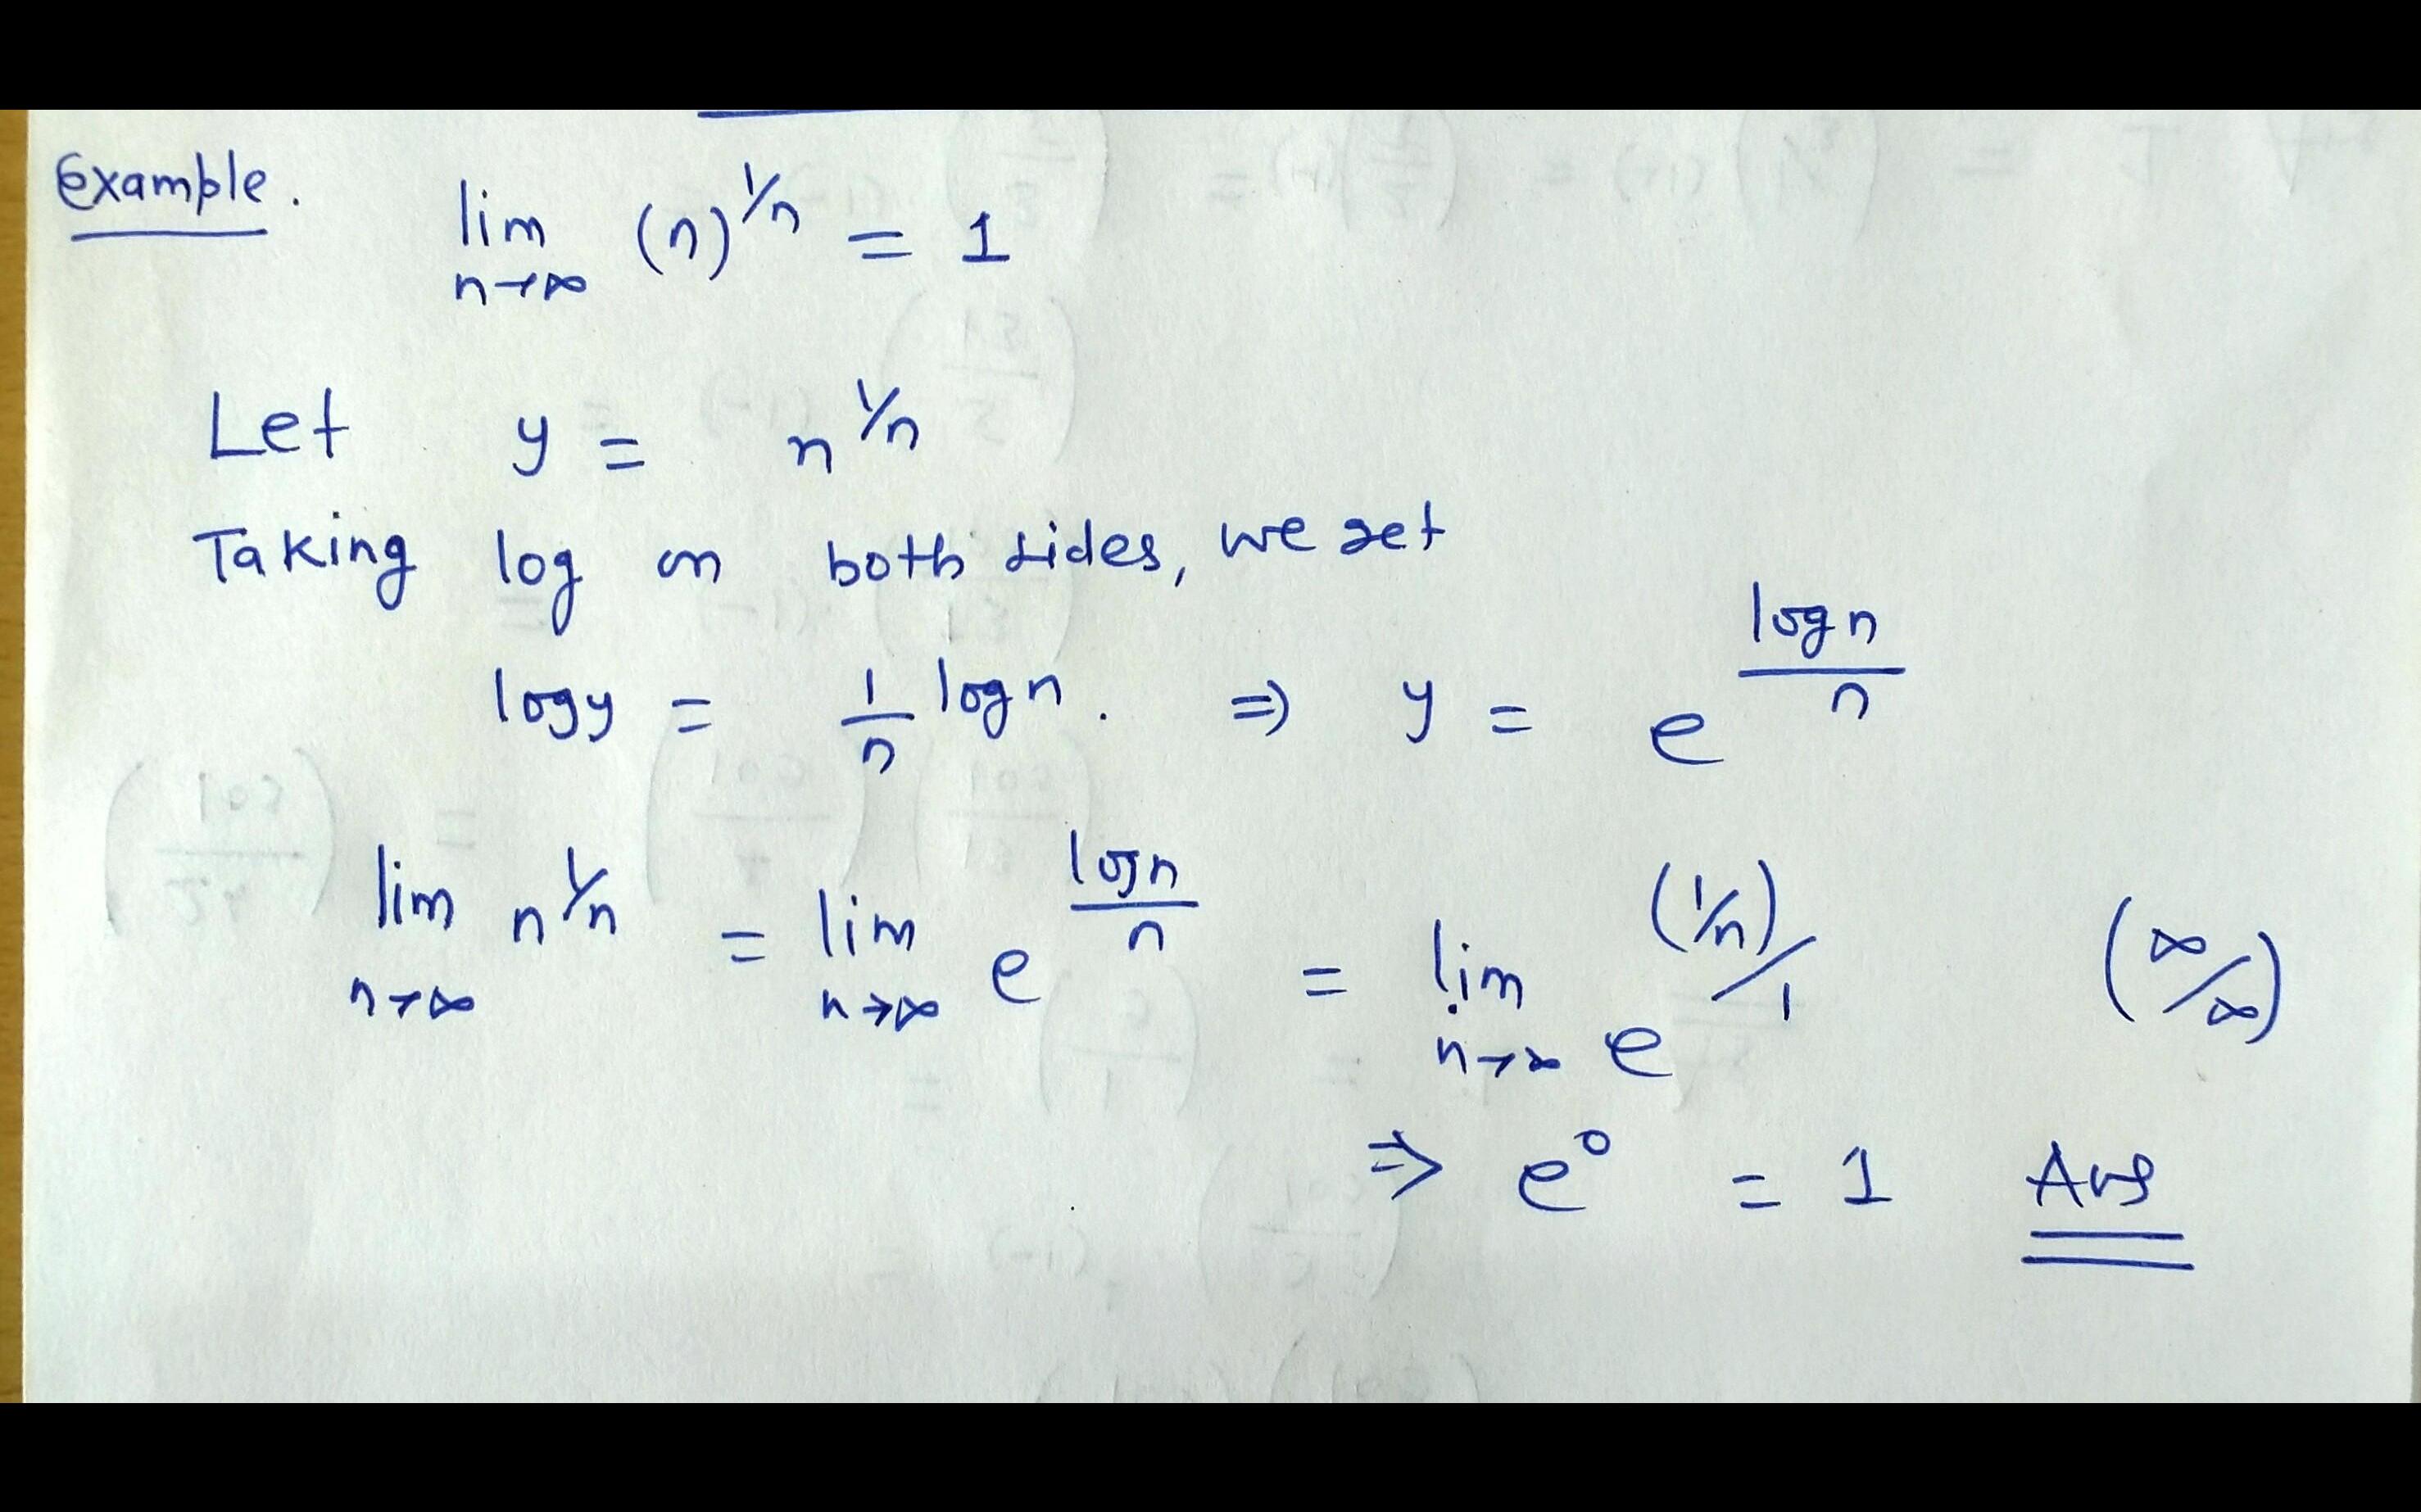 Example. lim n→∞ (n)^1/n = 1
Let y = n^1/n
Taking log on both sides, we get
log y = 1/n log n. ⇒ y = e^(log n / n)
lim n→∞ n^1/n = lim n→∞ e^(log n / n) = lim n→∞ e^((1/n)/1) (∞/∞)
⇒ e^0 = 1 Ans